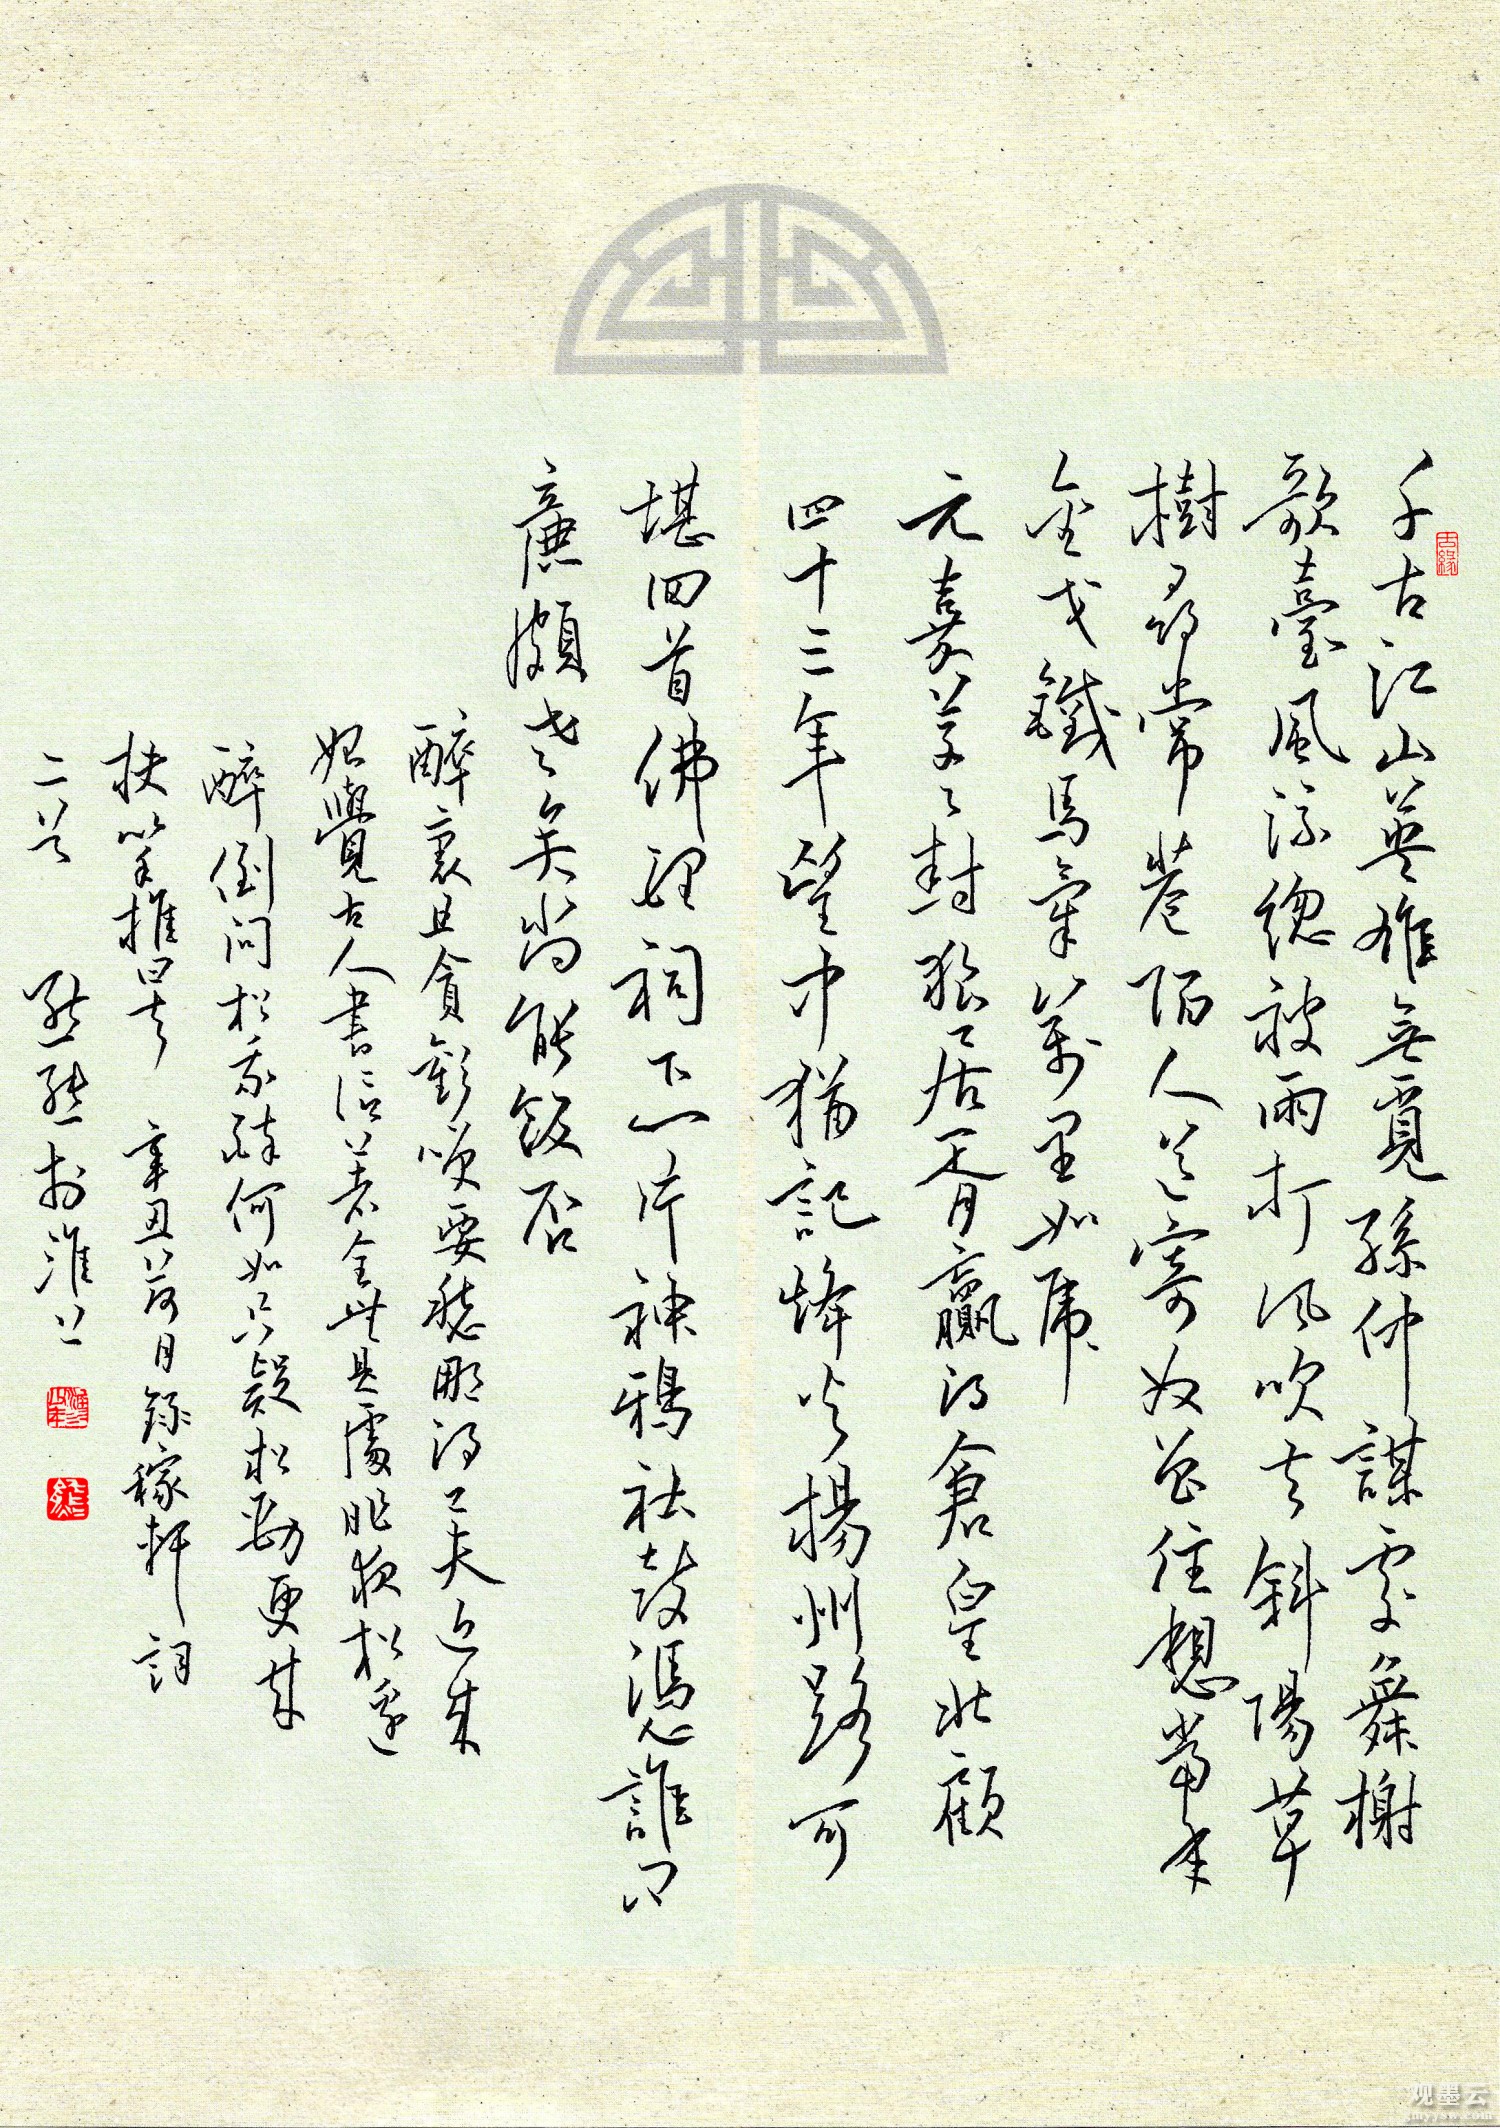 千古江山英雄無覓孫仲謀處舞榭
歌臺風流總被雨打風吹去斜陽草
樹尋常巷陌人道寄奴曾住想當年
金戈鐵馬氣萬里如虎
元嘉草草封狼居胥贏得倉皇北顧
四十三年望中猶記烽火揚州路可
堪回首佛狸祠下一片神鴉社鼓憑誰問
廉頗老矣尚能飯否
醉裏且貪歡笑要愁那得工夫近來
始覺古人書信著全無是處昨夜松邊
醉倒問松我醉何如只疑松動要來
扶以手推松曰去 辛丑荷月錄稼軒詞
二首 於淮上
古緣
观墨云